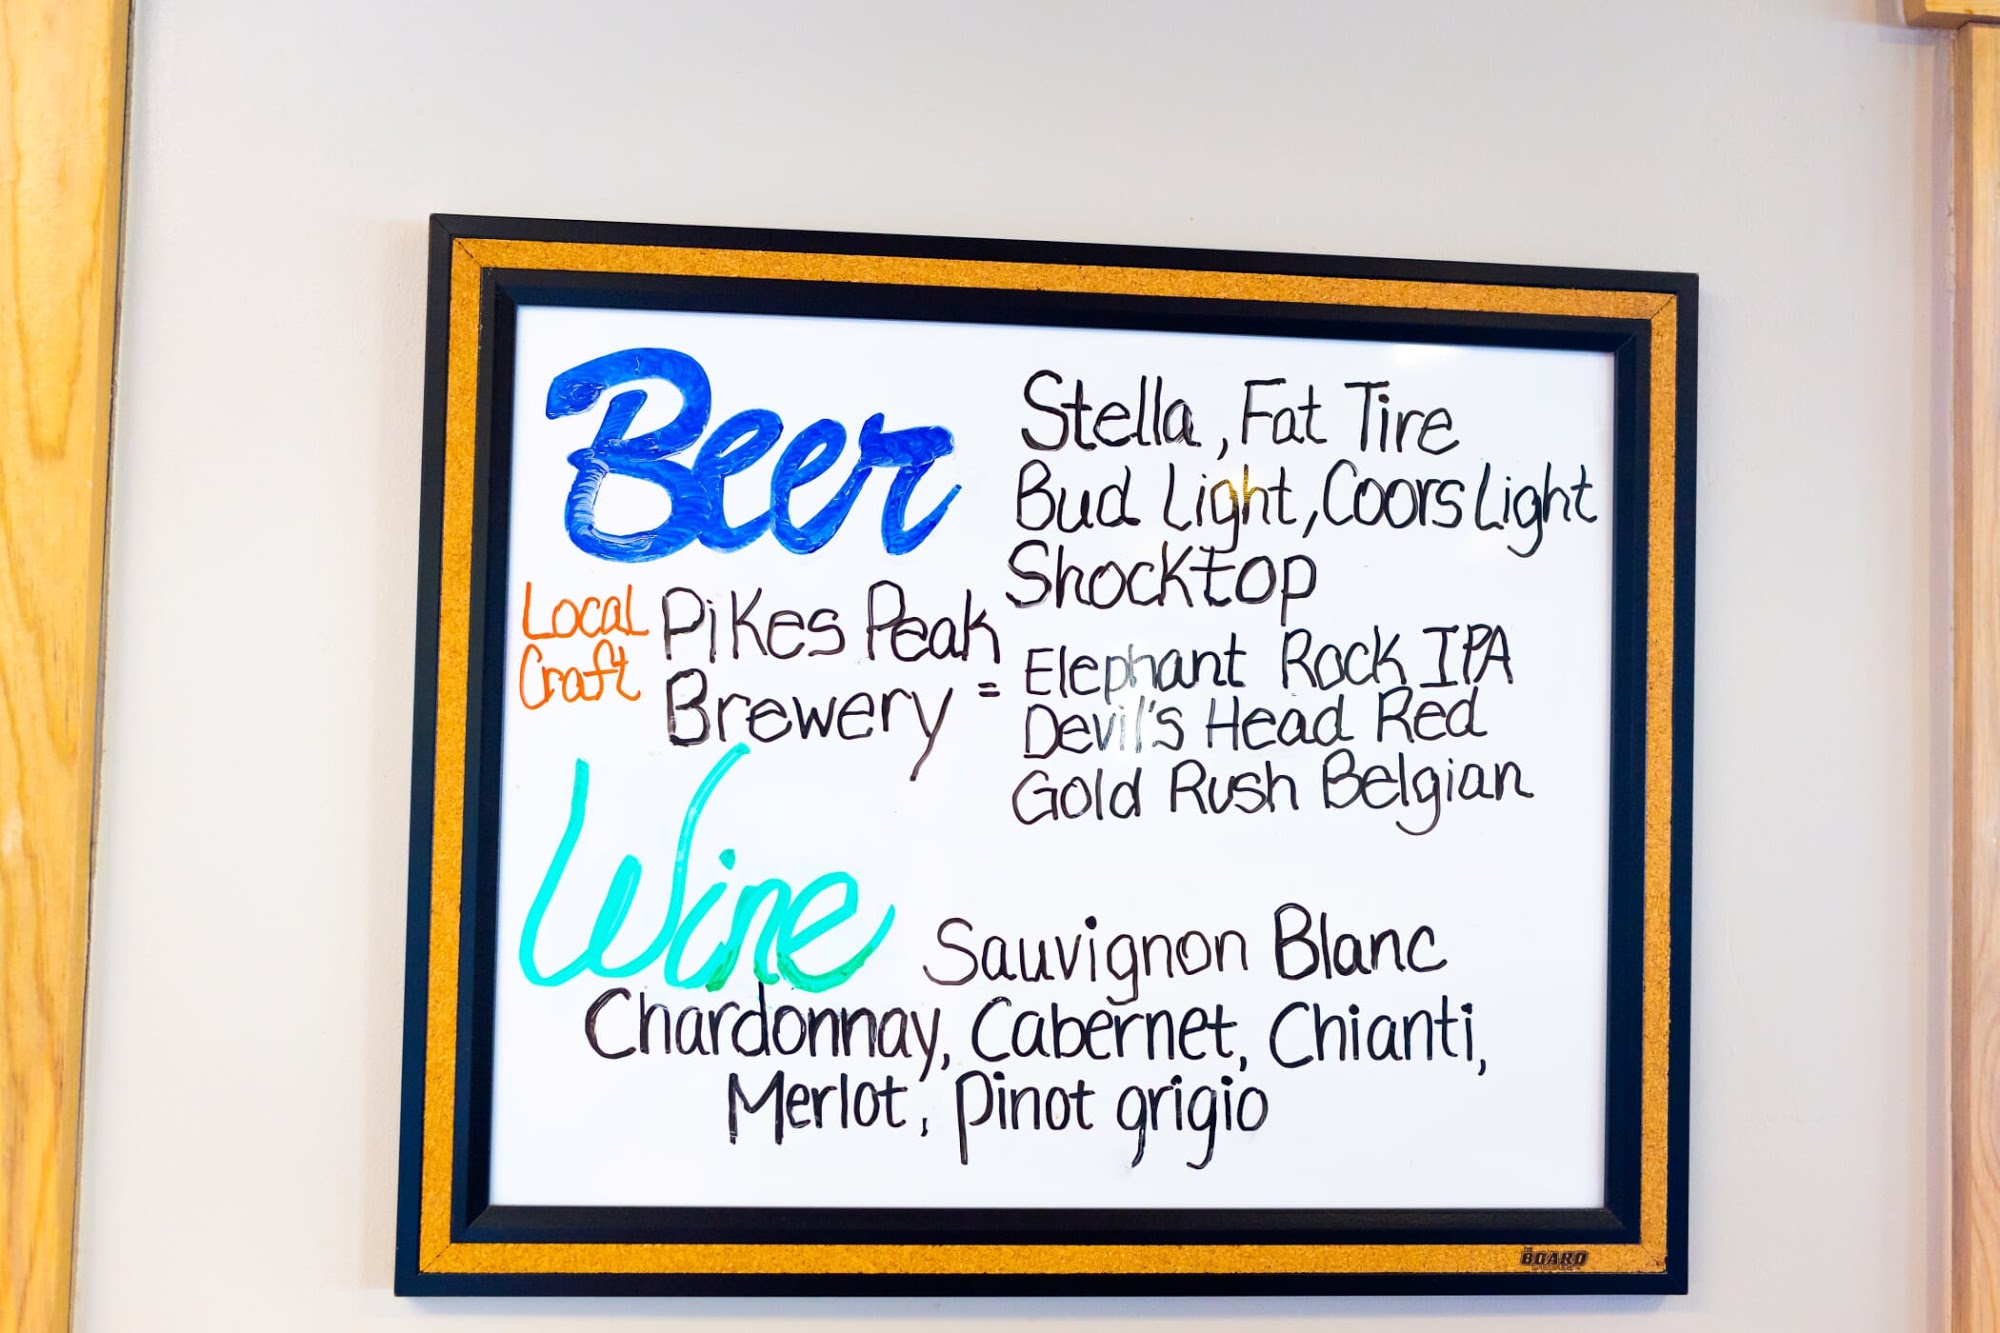 Beer
Stella, Fat Tire
Bud Light, Coors Light
Shocktop
Local
Craft
Pikes Peak
Brewery =
Elephant Rock IPA
Devil's Head Red
Gold Rush Belgian
Wine
Sauvignon Blanc
Chardonnay, Cabernet, Chianti,
Merlot, pinot grigio
THE
BOARD